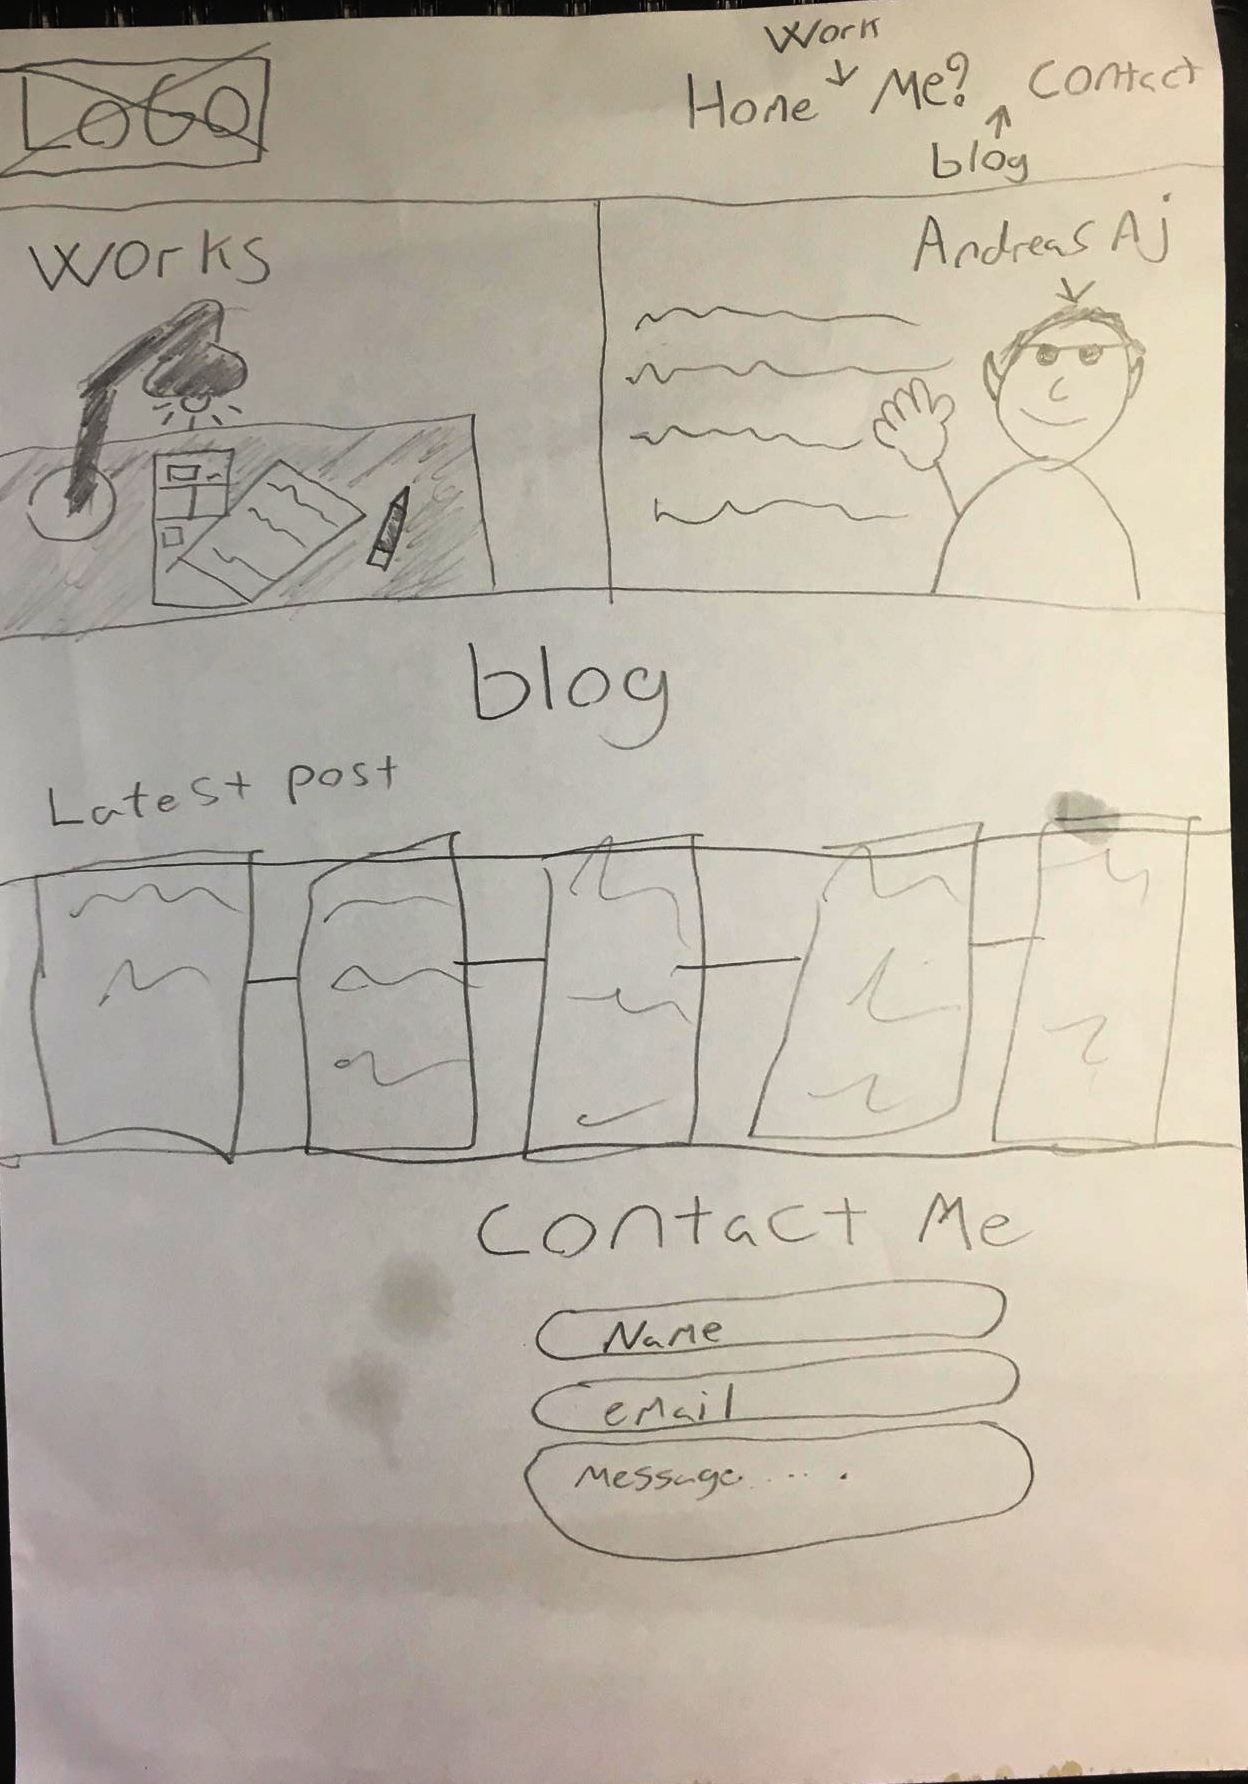 LOGO
Work
Home Me? Contact
blog
Works
Andreas Aj
blog
Latest post
Contact Me
Name
email
Message.....